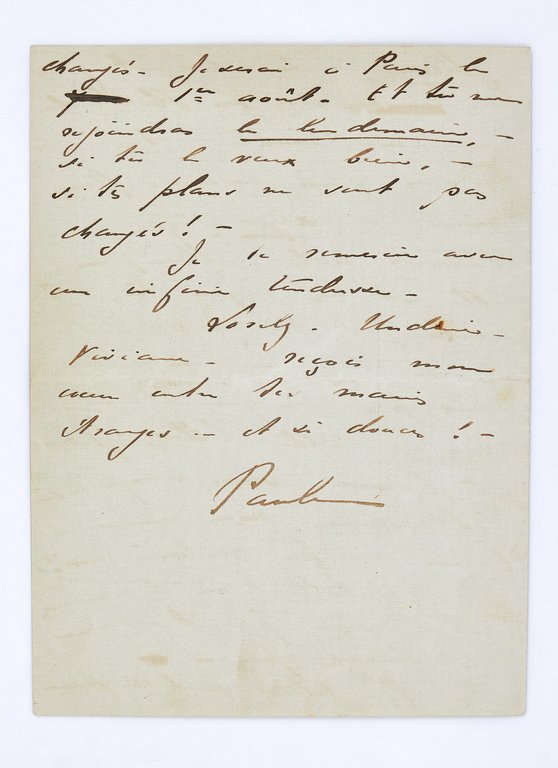 changés - Je serai à Paris le
1er août - Et tu me
rejoindras le lendemain, -
si tu le veux bien, -
si tes plans ne sont pas
changés ! -
Je te remercie avec
une infinie tendresse -
Lorely - Undine -
Viviane - reçois mon
cœur entre tes mains
étranges -- et si douces ! -
Paule